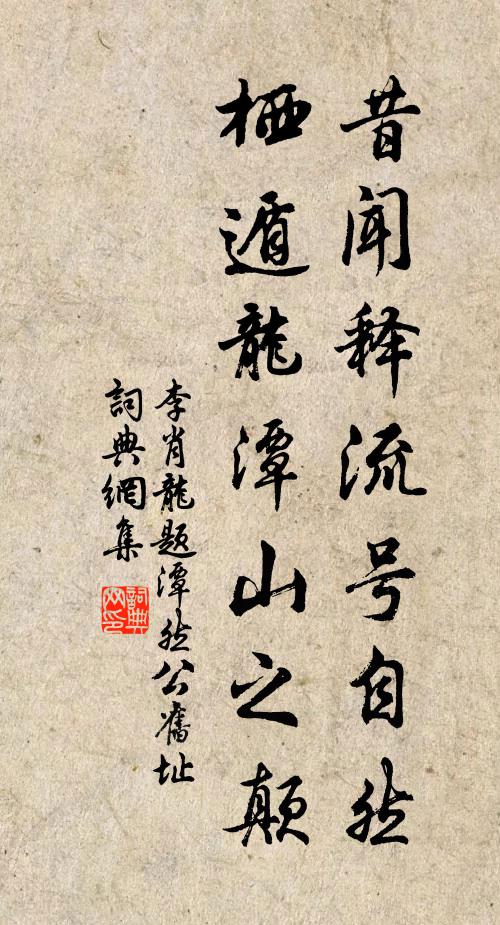 昔闻释流号自然
栖遁龍潭山之颠
李肖龍题潭然公舊址
詞典網集
詞典网印